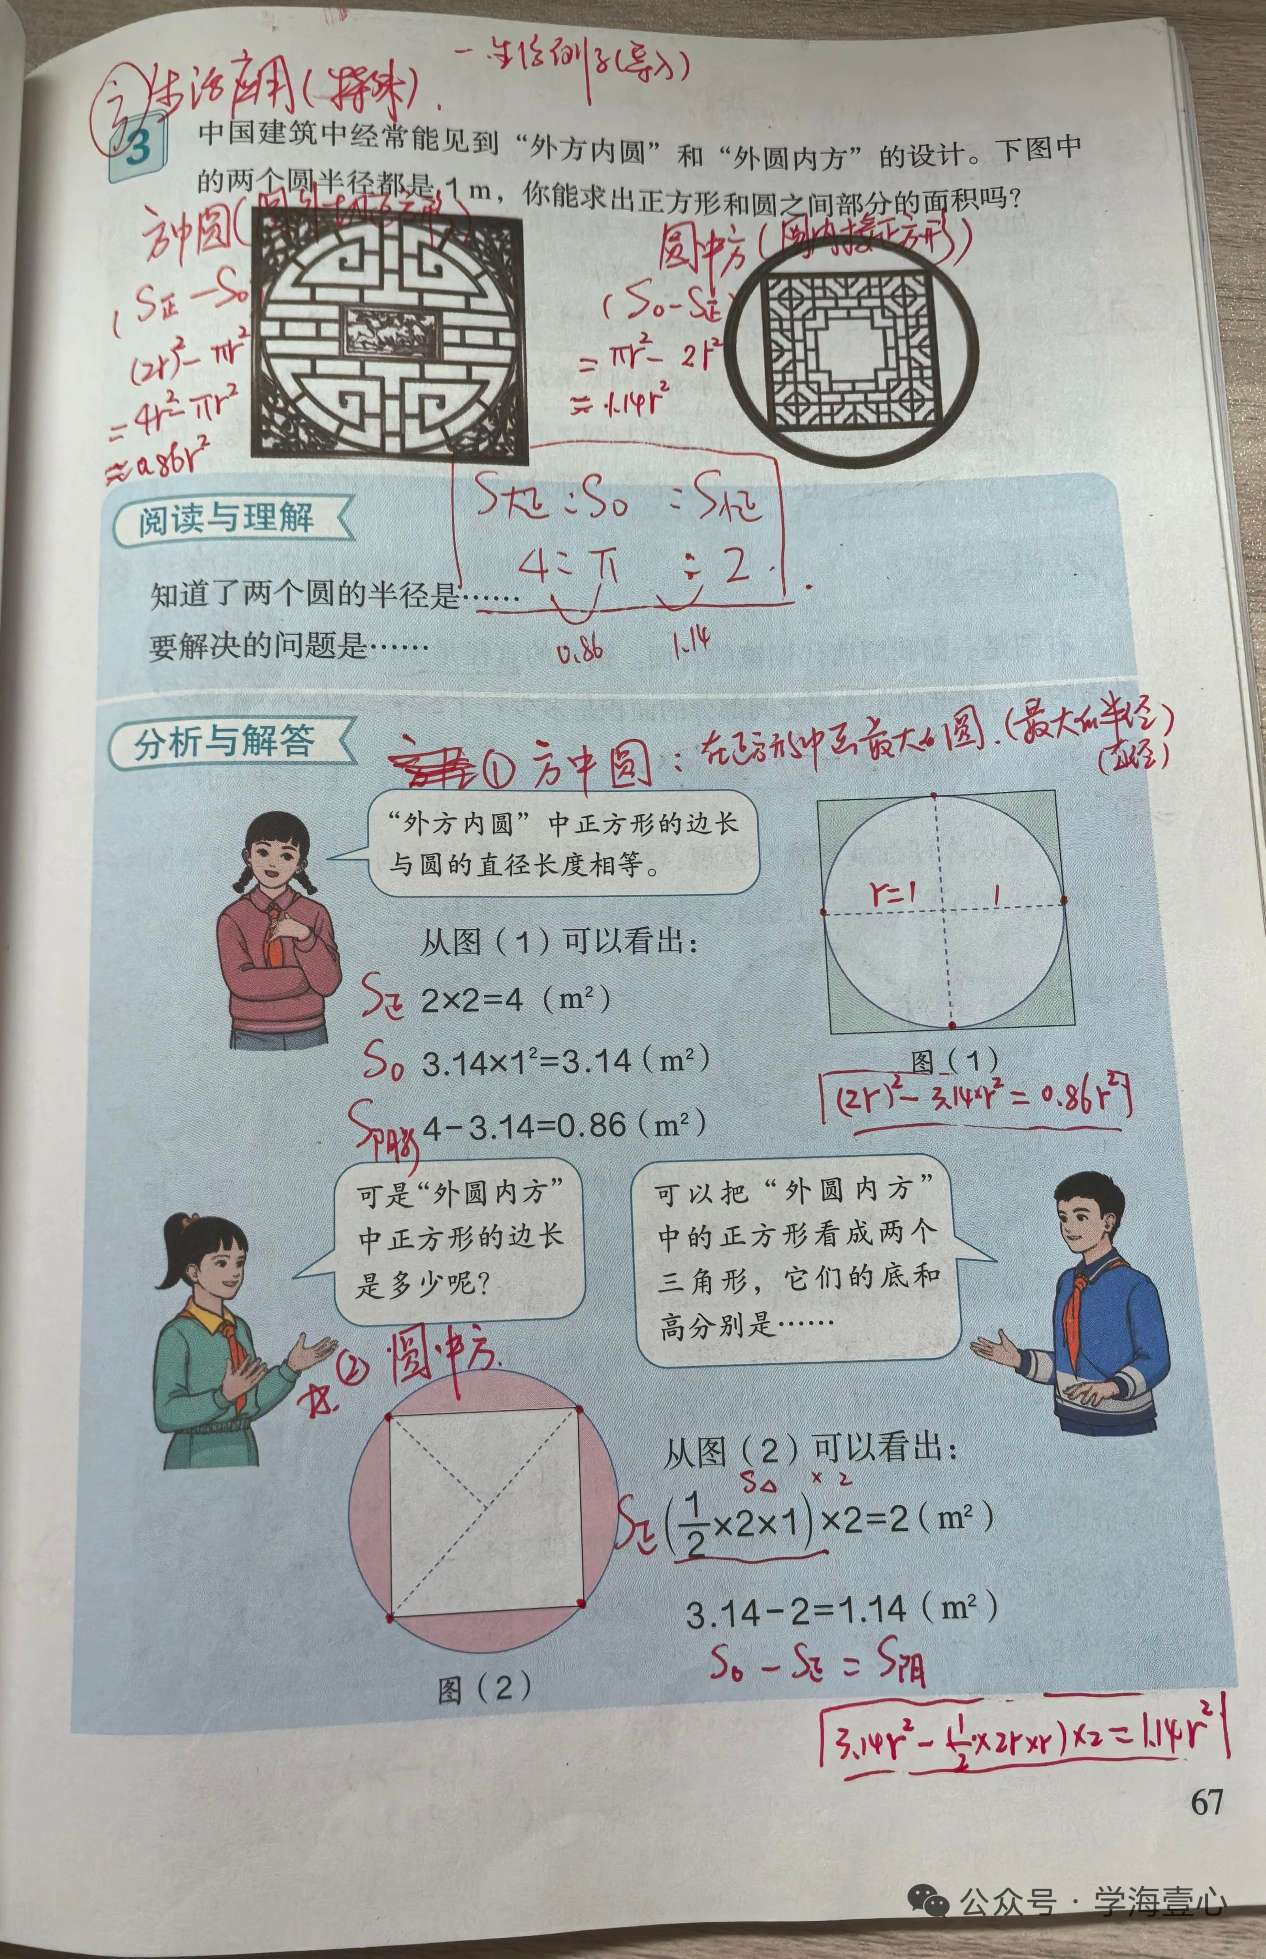 一生活例子(导入)
生活应用(特殊).
3 中国建筑中经常能见到“外方内圆”和“外圆内方”的设计。下图中
的两个圆半径都是 1 m，你能求出正方形和圆之间部分的面积吗？
方中圆(圆外切正方形)
(S正－S○
(2r)²－πr²
=4r²－πr²
≈0.86r²
圆中方(圆内接正方形)
(S○－S正)
=πr²－2r²
≈1.14r²
S大正:S○:S小正
4:π:2.
0.86 1.14
阅读与理解
知道了两个圆的半径是……
要解决的问题是……
分析与解答
①方中圆：在正方形中画最大的圆.(最大的半径)
(直径)
“外方内圆”中正方形的边长
与圆的直径长度相等。
r=1 1
从图（1）可以看出：
S正 2×2=4（m²）
S○ 3.14×1²=3.14（m²）
S阴影 4－3.14=0.86（m²）
图（1）
(2r)²－3.14×r²=0.86r²
可是“外圆内方”
中正方形的边长
是多少呢？
可以把“外圆内方”
中的正方形看成两个
三角形，它们的底和
高分别是……
②圆中方.
从图（2）可以看出：
S△ ×2
S正(1/2×2×1)×2=2（m²）
3.14－2=1.14（m²）
S○－S正=S阴
图（2）
3.14r²－(1/2×2r×r)×2=1.14r²
67
公众号·学海壹心